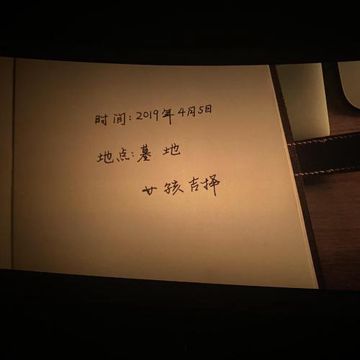 时间:2019年4月5日
地点:墓地
女孩吉择